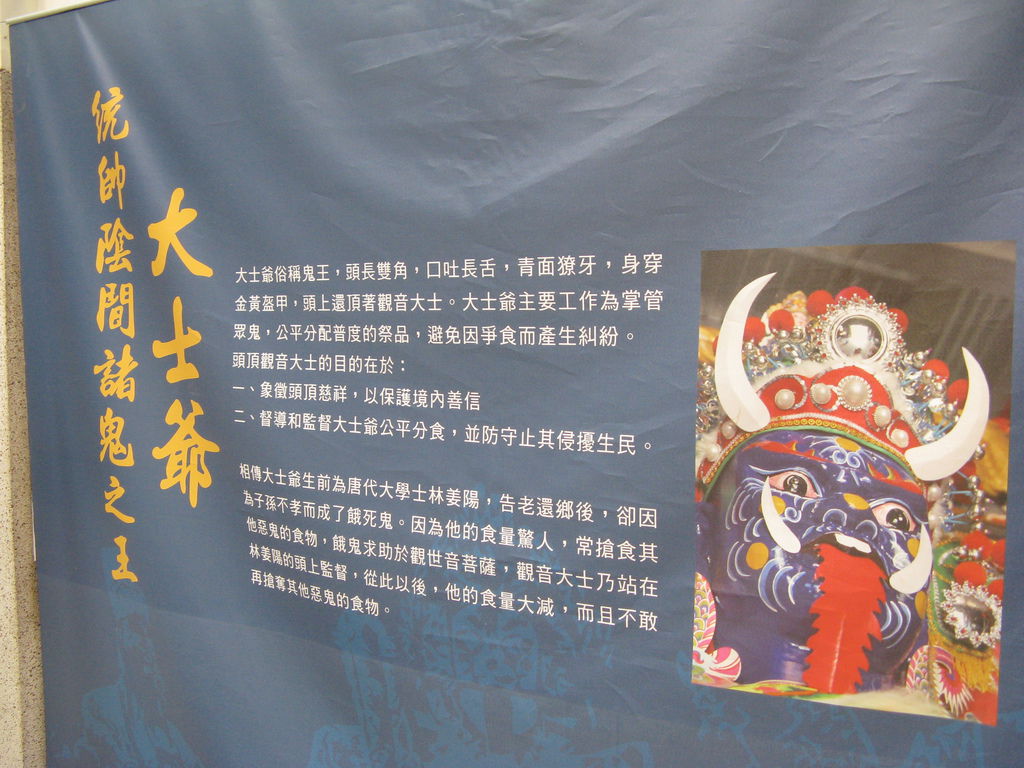 大士爺
統帥陰間諸鬼之王
大士爺俗稱鬼王，頭長雙角，口吐長舌，青面獠牙，身穿
金黃盔甲，頭上還頂著觀音大士。大士爺主要工作為掌管
眾鬼，公平分配普度的祭品，避免因爭食而產生糾紛。
頭頂觀音大士的目的在於：
一、象徵頭頂慈祥，以保護境內善信
二、督導和監督大士爺公平分食，並防守止其侵擾生民。
相傳大士爺生前為唐代大學士林姜陽，告老還鄉後，卻因
為子孫不孝而成了餓死鬼。因為他的食量驚人，常搶食其
他惡鬼的食物，餓鬼求助於觀世音菩薩，觀音大士乃站在
林姜陽的頭上監督，從此以後，他的食量大減，而且不敢
再搶奪其他惡鬼的食物。